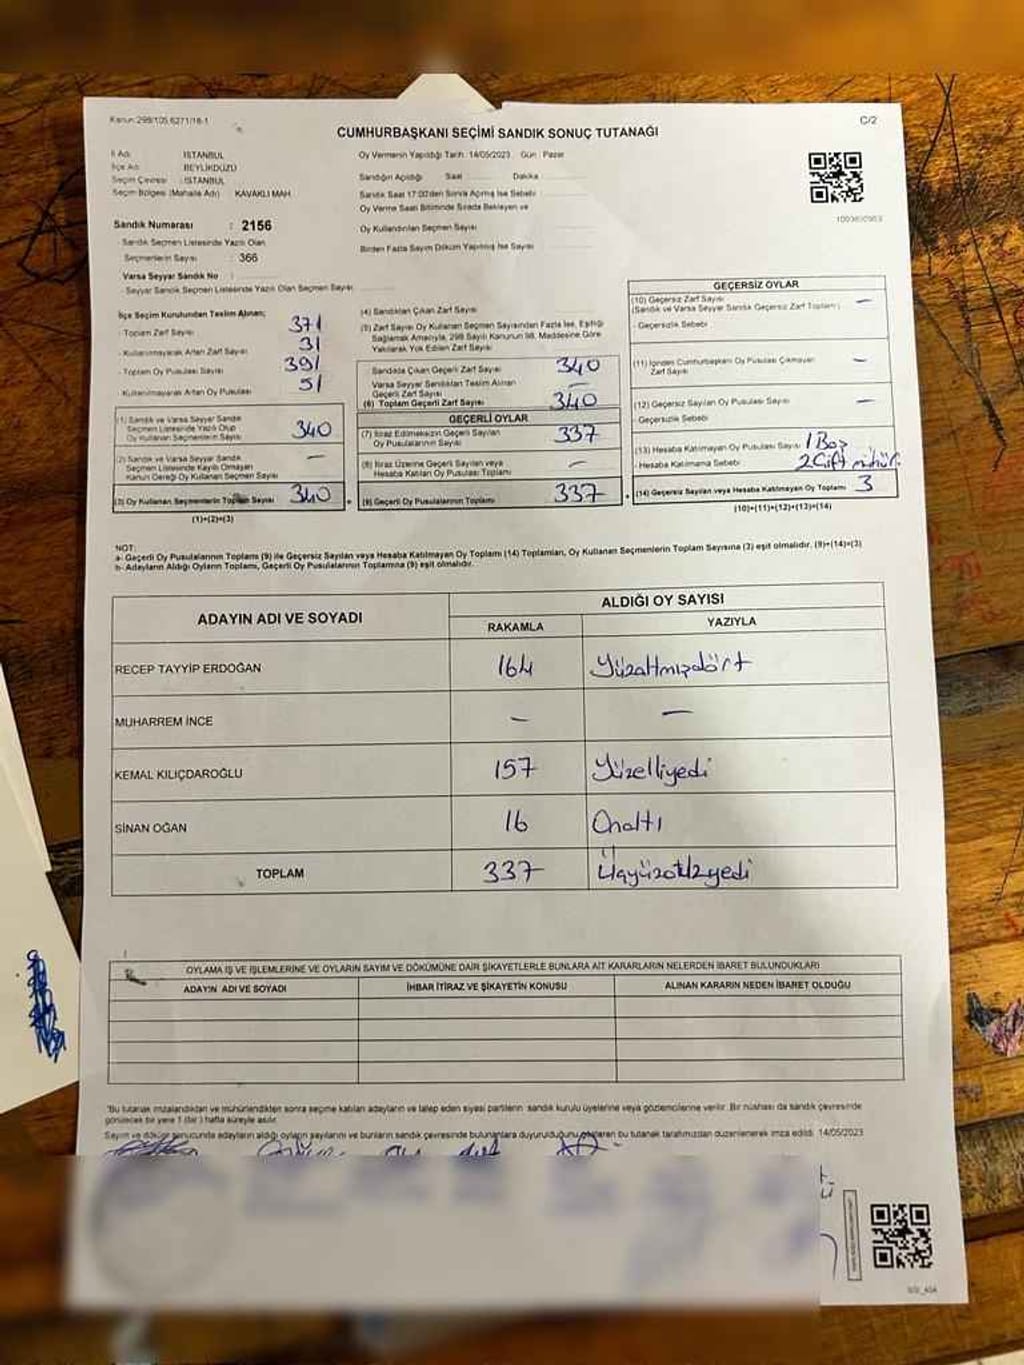 Kanun:298/105,6271/18-1
C/2
CUMHURBAŞKANI SEÇİMİ SANDIK SONUÇ TUTANAĞI
İl Adı : İSTANBUL
İlçe Adı : BEYLİKDÜZÜ
Seçim Çevresi : İSTANBUL
Seçim Bölgesi (Mahalle Adı) KAVAKLI MAH
Oy Vermenin Yapıldığı Tarih: 14/05/2023 Gün : Pazar
Sandığın Açıldığı Saat Dakika
Sandık Saat 17:00'den Sonra Açılmış İse Sebebi
Oy Verme Saati Bitiminde Sırada Bekleyen ve
Oy Kullandırılan Seçmen Sayısı
Birden Fazla Sayım Döküm Yapılmış İse Sayısı
Sandık Numarası : 2156
- Sandık Seçmen Listesinde Yazılı Olan
Seçmenlerin Sayısı : 366
Varsa Seyyar Sandık No :
- Seyyar Sandık Seçmen Listesinde Yazılı Olan Seçmen Sayısı
İlçe Seçim Kurulundan Teslim Alınan;
- Toplam Zarf Sayısı 371
- Kullanılmayarak Artan Zarf Sayısı 31
- Toplam Oy Pusulası Sayısı 391
- Kullanılmayarak Artan Oy Pusulası 51
(1) Sandık ve Varsa Seyyar Sandık
Seçmen Listesinde Yazılı Olup
Oy Kullanan Seçmenlerin Sayısı 340
(2) Sandık ve Varsa Seyyar Sandık
Seçmen Listesinde Kayıtlı Olmayan
Kanun Gereği Oy Kullanan Seçmen Sayısı –
(3) Oy Kullanan Seçmenlerin Toplam Sayısı 340
(1)+(2)=(3)
(4) Sandıktan Çıkan Zarf Sayısı
(5) Zarf Sayısı Oy Kullanan Seçmen Sayısından Fazla İse, Eşitliği
Sağlamak Amacıyla, 298 Sayılı Kanunun 98. Maddesine Göre
Yakılarak Yok Edilen Zarf Sayısı
Sandıkta Çıkan Geçerli Zarf Sayısı 340
Varsa Seyyar Sandıktan Teslim Alınan
Geçerli Zarf Sayısı –
(6) Toplam Geçerli Zarf Sayısı 340
GEÇERLİ OYLAR
(7) İtiraz Edilmeksizin Geçerli Sayılan
Oy Pusulalarının Sayısı 337
(8) İtiraz Üzerine Geçerli Sayılan veya
Hesaba Katılan Oy Pusulaları Toplamı –
(9) Geçerli Oy Pusulalarının Toplamı 337
GEÇERSİZ OYLAR
(10) Geçersiz Zarf Sayısı –
(Sandık ve Varsa Seyyar Sandık Geçersiz Zarf Toplamı)
- Geçersizlik Sebebi
(11) İçinden Cumhurbaşkanı Oy Pusulası Çıkmayan
Zarf Sayısı –
(12) Geçersiz Sayılan Oy Pusulası Sayısı –
- Geçersizlik Sebebi
(13) Hesaba Katılmayan Oy Pusulası Sayısı 1 Boş
- Hesaba Katılmama Sebebi 2 Çift mühür
(14) Geçersiz Sayılan veya Hesaba Katılmayan Oy Toplamı 3
(10)+(11)+(12)+(13)=(14)
NOT:
a- Geçerli Oy Pusulalarının Toplamı (9) ile Geçersiz Sayılan veya Hesaba Katılmayan Oy Toplamı (14) Toplamları, Oy Kullanan Seçmenlerin Toplam Sayısına (3) eşit olmalıdır. (9)+(14)=(3)
b- Adayların Aldığı Oyların Toplamı, Geçerli Oy Pusulalarının Toplamına (9) eşit olmalıdır.
ADAYIN ADI VE SOYADI ALDIĞI OY SAYISI
RAKAMLA YAZIYLA
RECEP TAYYİP ERDOĞAN 164 Yüzaltmışdört
MUHARREM İNCE – –
KEMAL KILIÇDAROĞLU 157 Yüzelliyedi
SİNAN OĞAN 16 Onaltı
TOPLAM 337 Üçyüzotuzyedi
OYLAMA İŞ VE İŞLEMLERİNE VE OYLARIN SAYIM VE DÖKÜMÜNE DAİR ŞİKAYETLERLE BUNLARA AİT KARARLARIN NELERDEN İBARET BULUNDUKLARI
ADAYIN ADI VE SOYADI İHBAR İTİRAZ VE ŞİKAYETİN KONUSU ALINAN KARARIN NEDEN İBARET OLDUĞU
*Bu tutanak imzalandıktan ve mühürlendikten sonra seçime katılan adayların ve talep eden siyasi partilerin sandık kurulu üyelerine veya gözlemcilerine verilir. Bir nüshası da sandık çevresinde
görülecek bir yere 1 (bir) hafta süreyle asılır.
Sayım ve döküm sonucunda adayların aldığı oyların sayılarını ve bunların sandık çevresinde bulunanlara duyurulduğunu gösteren bu tutanak tarafımızdan düzenlenerek imza edildi. 14/05/2023